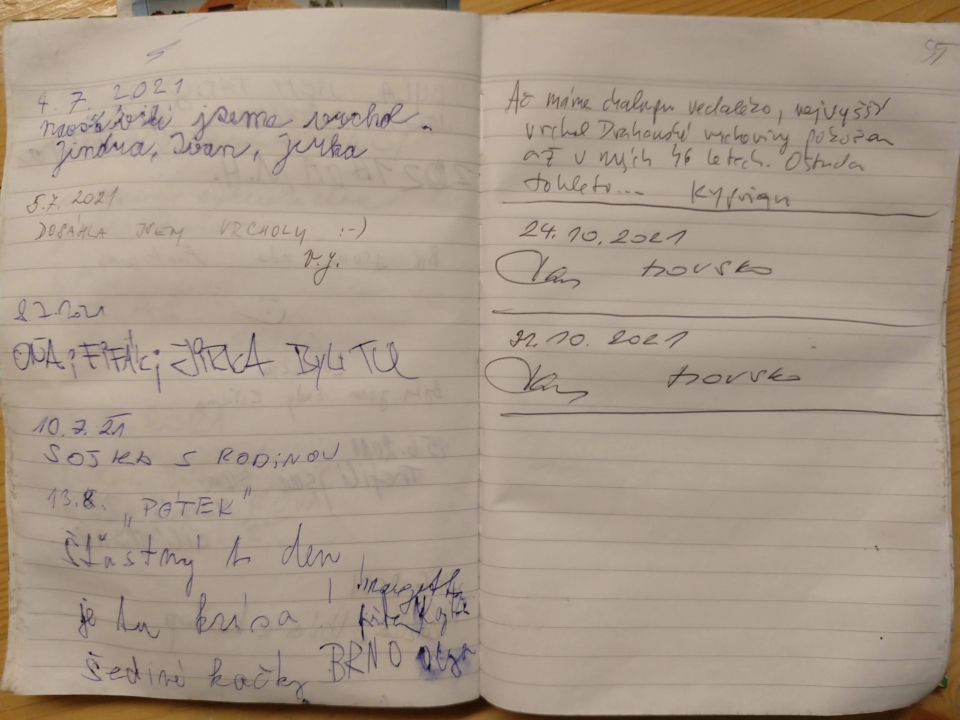 4.7.2021
navštívili jsme vrchol.
Jindra, Ivan, Jirka
5.7.2021
DOSÁHLA JSEM VRCHOLU :-)
V.J.
8.7.2021
OŇA; FIFÁK; JIRKA BYLI TU
10.7.21
SOJKA S RODINOU
13.8. „PÁTEK"
Šťastný to den
je tu krása
Šedivé kačky BRNO
Ač máme chalupu nedaleko, nejvyšší
vrchol Drahanské vrchoviny pokořen
až v mých 46 letech. Ostuda
tohleto... Kyprian
24.10.2021
31.10.2021